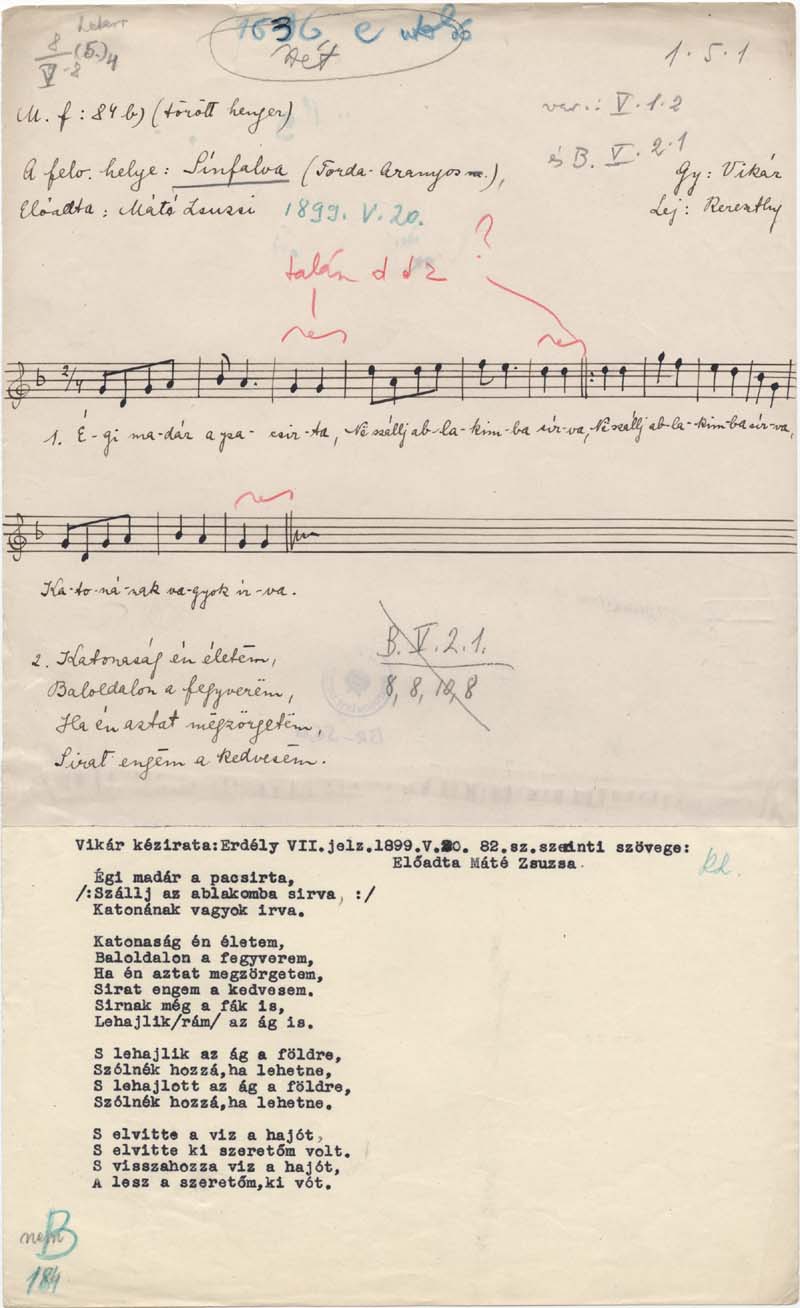 8
V-8
(5.)4
1·5·1
M. f: 84 b) (törött henger)
var.: V.1.2
és B. V. 2.1
A felv. helye: Sínfalva (Torda-Aranyos m.),
Gy: Vikár
Előadta: Máté Zsuzsi 1899. V. 20.
Lej:
talán d d 2 ?
2/4
1. É-gi ma-dár a pa-csir-ta, Ne szállj ab-la-kim-ba sír-va, Ne szállj ab-la-kim-ba sír-va,
Ka-to-ná-nak va-gyok ír-va.
2. Katonaság én életëm,
Baloldalon a fegyverëm,
Ha én aztat mëgzörgetëm,
Sirat engëm a kedvesëm.
B. V. 2. 1.
8, 8, 10, 8
Vikár kézirata:Erdély VII.jelz.1899.V.20. 82.sz.szerinti szövege:
Előadta Máté Zsuzsa.
Égi madár a pacsirta,
/:Szállj az ablakomba sirva, :/
Katonának vagyok irva.
Katonaság én életem,
Baloldalon a fegyverem,
Ha én aztat megzörgetem,
Sirat engem a kedvesem.
Sirnak még a fák is,
Lehajlik/rám/ az ág is.
S lehajlik az ág a földre,
Szólnék hozzá,ha lehetne,
S lehajlott az ág a földre,
Szólnék hozzá,ha lehetne.
S elvitte a viz a hajót,
S elvitte ki szeretőm volt.
S visszahozza viz a hajót,
A lesz a szeretőm,ki vót.
nem B
184